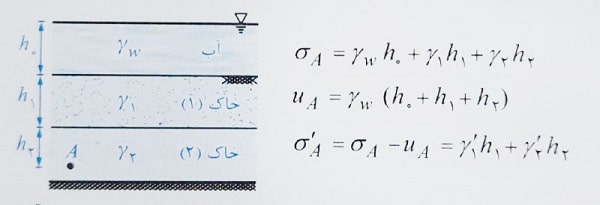 h۰ γw آب
h۱ γ۱ خاک (۱)
h۲ A γ۲ خاک (۲)
σA = γw h۰ + γ۱h۱ + γ۲h۲
uA = γw (h۰ + h۱ + h۲)
σ′A = σA − uA = γ′۱h۱ + γ′۲h۲